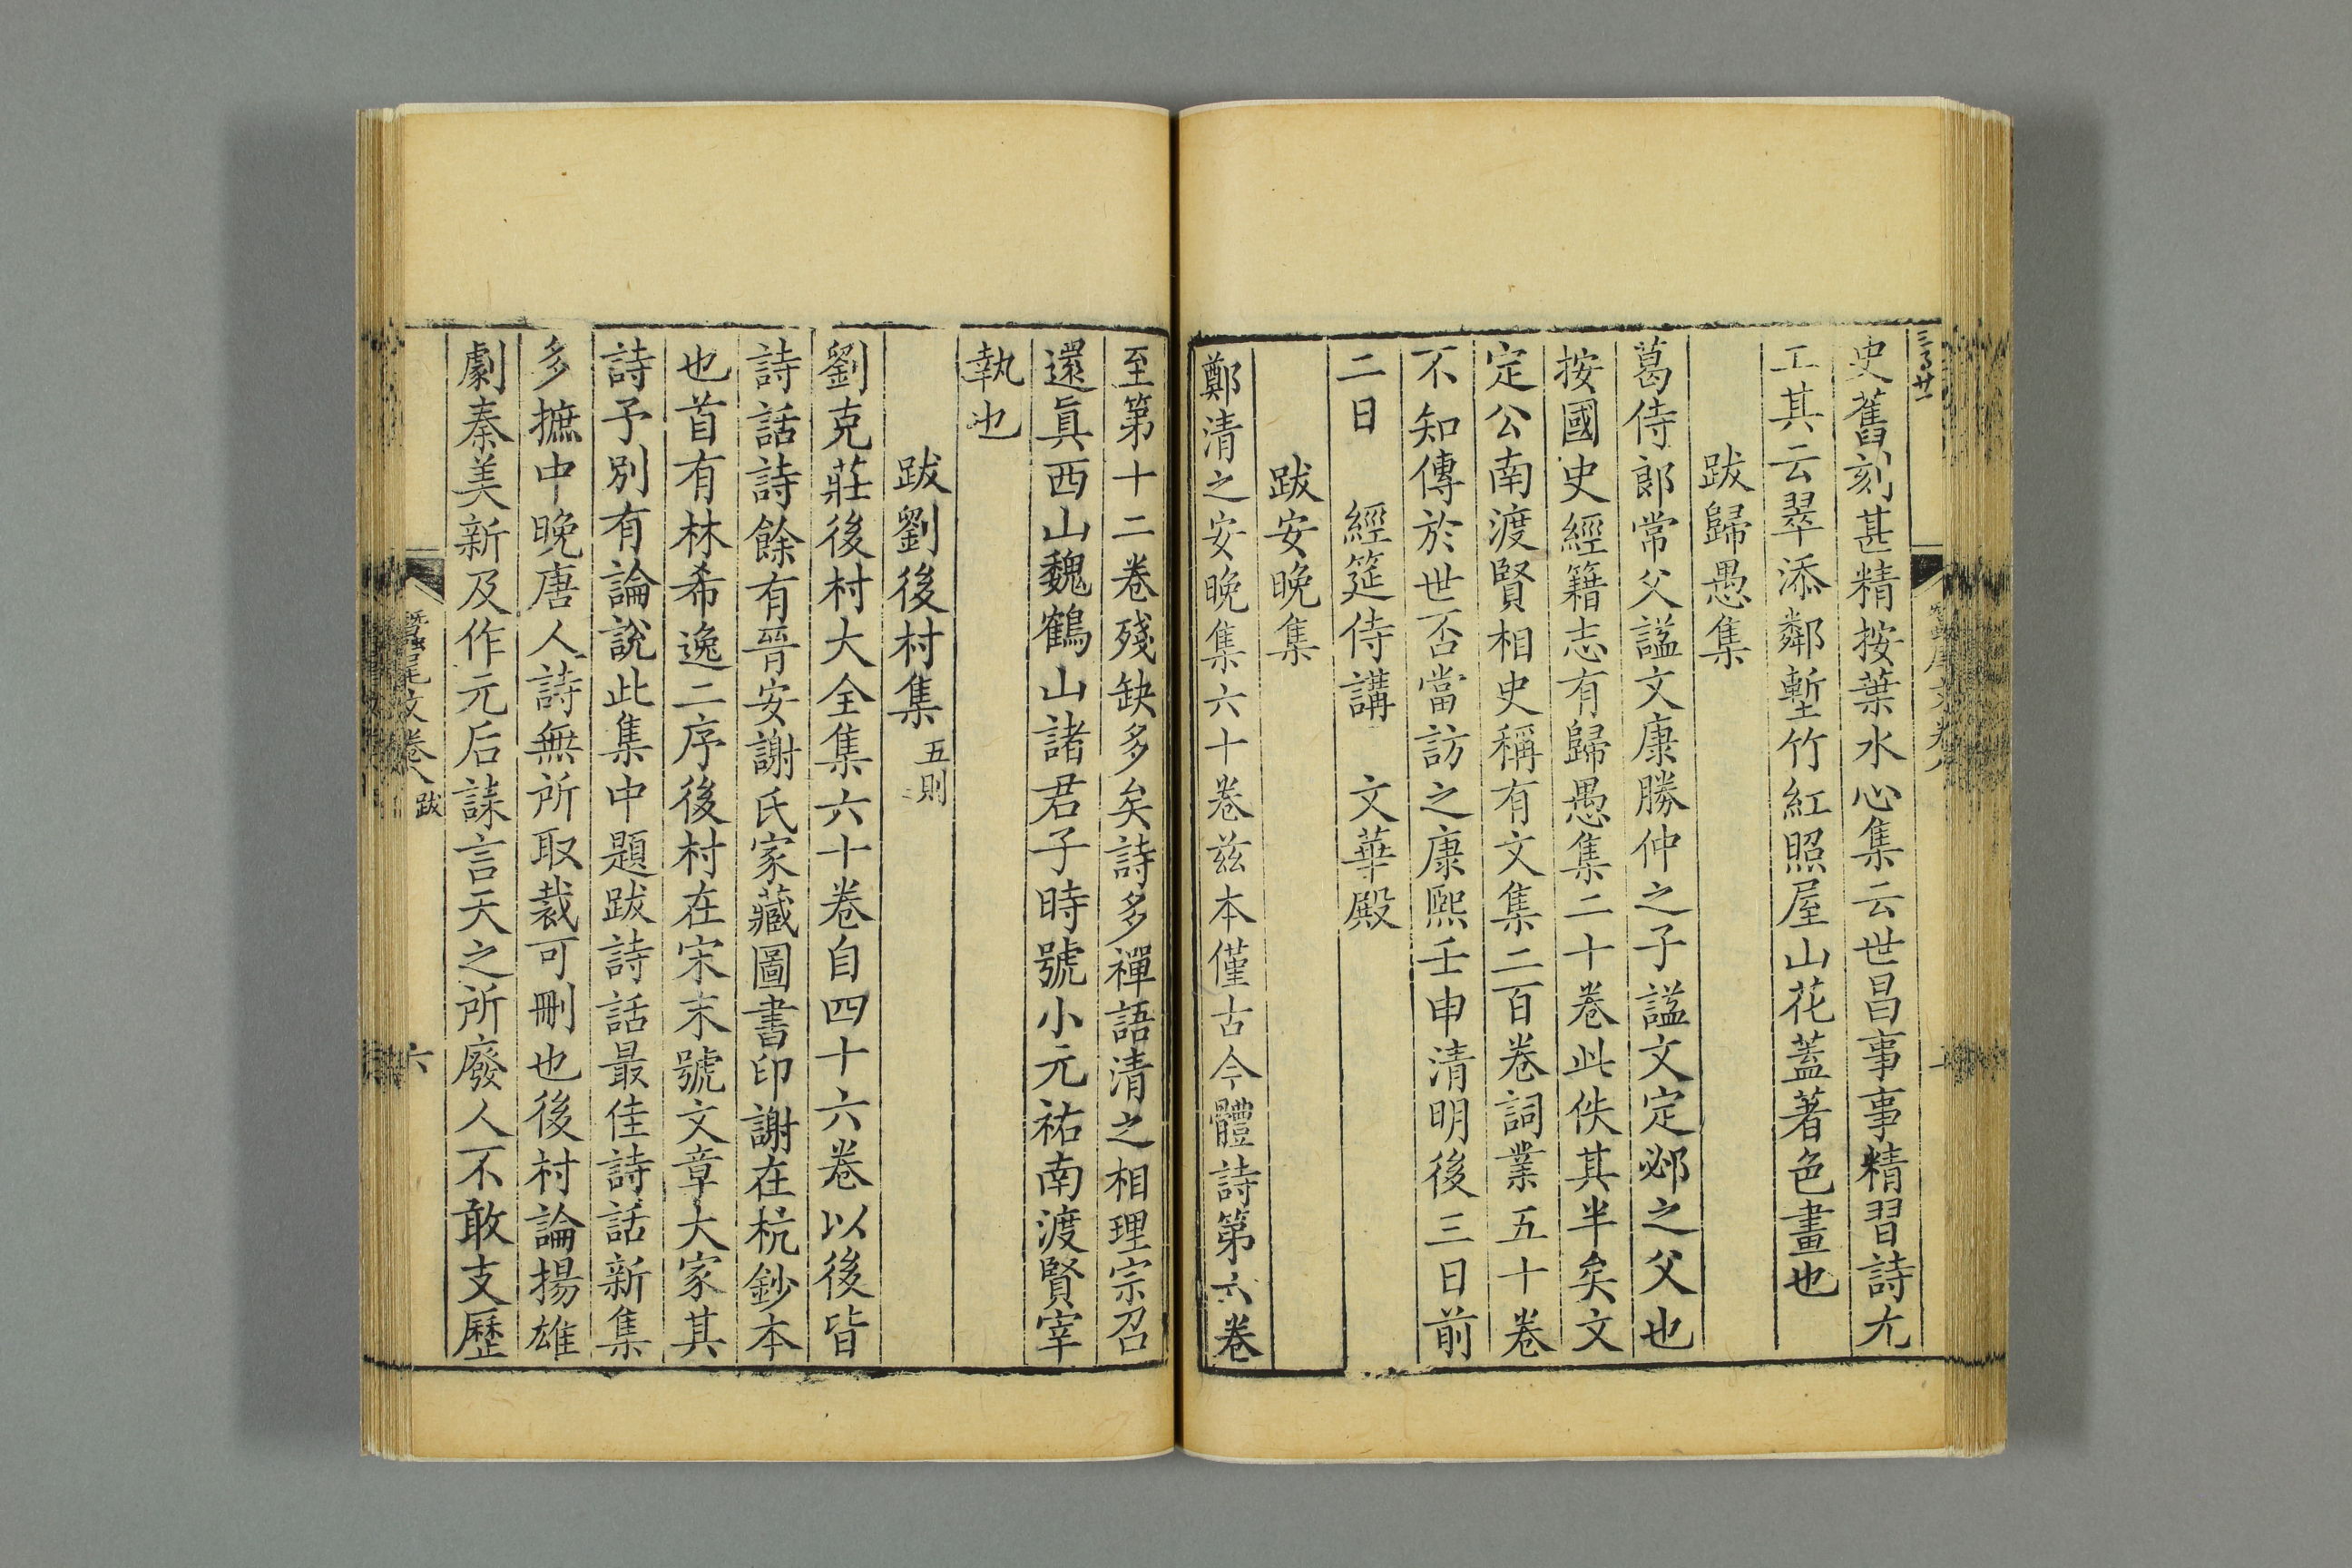 史舊刻甚精按葉水心集云世昌事事精習詩尤
工其云翠添鄰塹竹紅照屋山花蓋著色畫也
跋歸愚集
葛侍郎常父謚文康勝仲之子謚文定邲之父也
按國史經籍志有歸愚集二十卷此佚其半矣文
定公南渡賢相史稱有文集二百卷詞業五十卷
不知傳於世否當訪之康熙壬申清明後三日前
二日 經筵侍講 文華殿
跋安晚集
鄭清之安晚集六十卷玆本僅古今體詩第六卷
至第十二卷殘缺多矣詩多禪語清之相理宗召
還眞西山魏鶴山諸君子時號小元祐南渡賢宰
執也
跋劉後村集 五則
劉克莊後村大全集六十卷自四十六卷以後皆
詩話詩餘有晉安謝氏家藏圖書印謝在杭鈔本
也首有林希逸二序後村在宋末號文章大家其
詩予別有論說此集中題跋詩話最佳詩話新集
多摭中晚唐人詩無所取裁可刪也後村論揚雄
劇秦美新及作元后誄言天之所廢人不敢支歷
蠶尾文卷八 跋
六